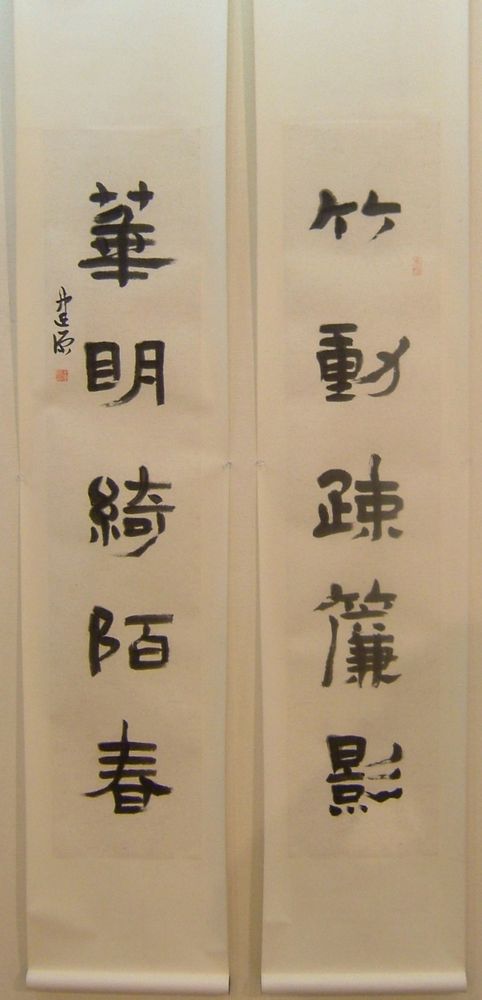 竹動疎簾影
華明綺陌春